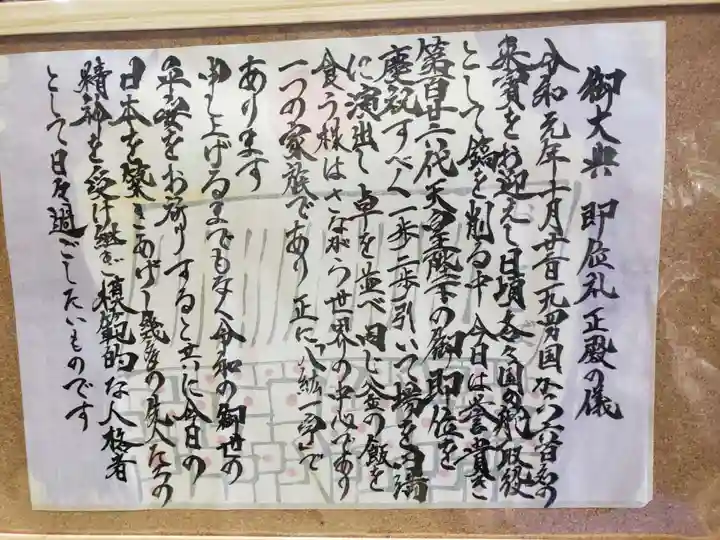 御大典 即位礼正殿の儀
令和元年十月廿二日 一九四国 六百名の
来賓をお迎えし日頃各々国の代取役
として鎬を削る中 今日は誉貴き
第百廿六代天皇陛下の御即位を
慶祝すべく一歩二歩引いて場を
に演出し 卓を並べ同じ釜の飯を
食う様は さながら世界の中心であり
一つの家族であり 正に「八紘一宇」で
あります
申し上げるまでもなく令和の御世の
平安をお祈りすると共に今日の
日本を築きあげし幾多の先人たちの
精神を受け継ぎ模範的な人格者
として日々過ごしたいものです